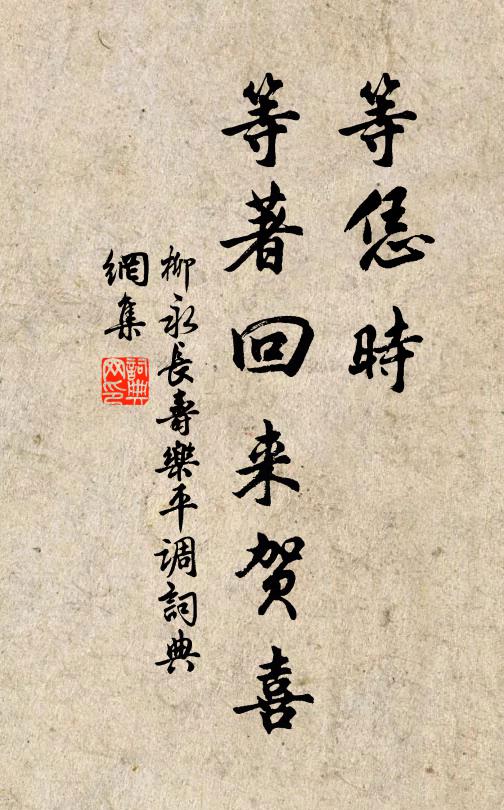 等恁時
等著回来贺喜
柳永長壽樂平调詞典
網集
詞典
网印